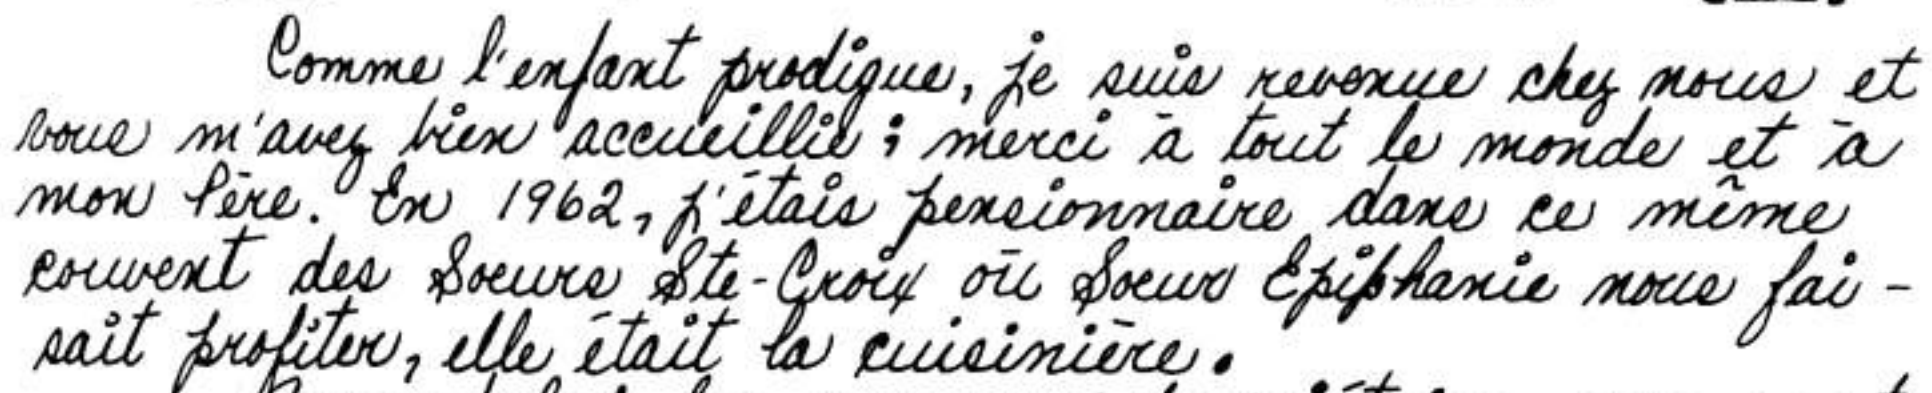 Comme l'enfant prodigue, je suis revenue chez nous et
vous m'avez bien accueillie ; merci à tout le monde et à
mon Père. En 1962, j'étais pensionnaire dans ce même
couvent des Soeurs Ste-Croix où Soeur Epiphanie nous fai-
sait profiter, elle était la cuisinière.